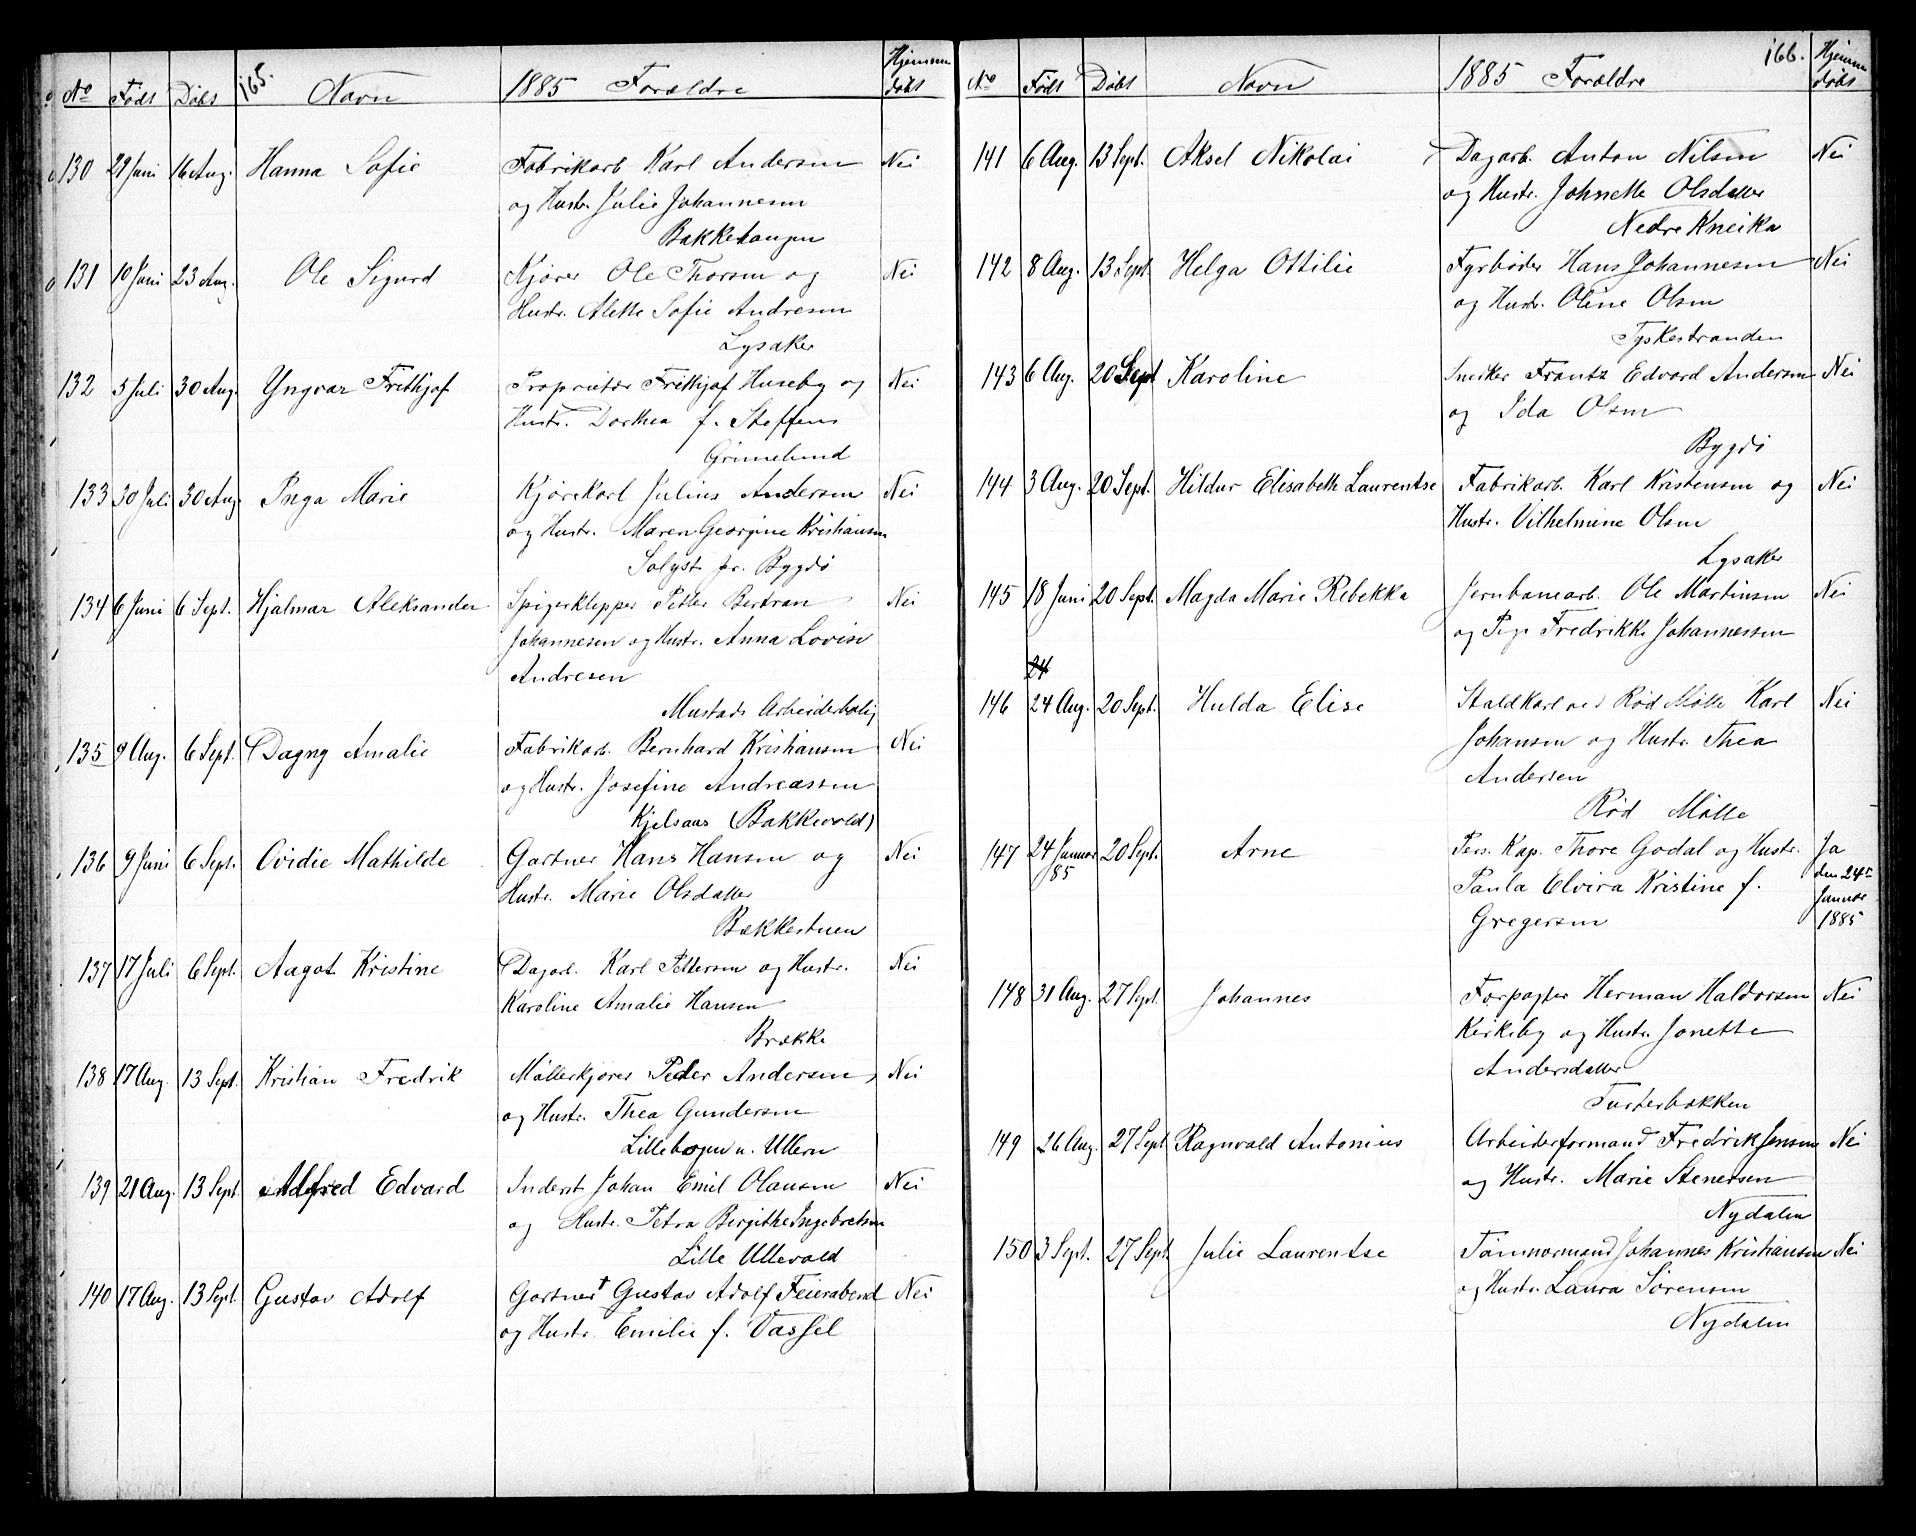 No Født Døbt 165. Navn 1885 Forældre Hjemme døbt
130 29 Juni 16 Aug. Hanna Sofie Fabrikarb. Karl Andersen Nei
og Hustr. Julie Johannesen
Bakkehaugen
131 10 Juni 23 Aug. Ole Sigurd Kjører Ole Thorsen og Nei
Hustr. Alette Sofie Andresen
Lysaker
132 5 Juli 30 Aug. Yngvar Frithjof Proprietær Frithjof Huseby og Nei
Hustr. Dorthea f. Steffens
Grimelund
133 30 Juli 30 Aug Inga Marie Kjørekarl Julius Andersen Nei
og Hustr. Maren Georgine Kristiansen
Solyst pr. Bygdö
134 6 Juni 6 Sept. Hjalmar Aleksander Spigerklipper Petter Bertran Nei
Johannesen og Hustr. Anna Lovise
Andresen
Mustads Arbeiderbolig
135 9 Aug. 6 Sept. Dagny Amalie Fabrikarb. Bernhard Kristiansen Nei
og Hustr. Josefine Andreassen
Kjelsaas (Bakkevold)
136 9 Juni 6 Sept. Ovidie Mathilde Gartner Hans Hansen og Nei
Hustr. Marie Olsdatter
Bækkestuen
137 17 Juli 6 Sept. Aagot Kristine Dagarb. Karl Pettersen og Hustr. Nei
Karoline Amalie Hansen
Brække
138 17 Aug. 13 Sept. Kristian Fredrik Møllerkjører Peder Andersen Nei
og Hustr. Thea Gundersen
Lilleborgen u. Ullern
139 21 Aug. 13 Sept. Alfred Edvard Inderst Johan Emil Olausen Nei
og Hustr. Petra Birgithe Ingebretsen
Lille Ullevold
140 17 Aug. 13 Sept. Gustav Adolf Gartner Gustav Adolf Feierabend Nei
og Hustr. Emilie f. Vassel
No Født Døbt Navn 1885 Forældre 166. Hjemme døbt
141 6 Aug. 13 Sept. Aksel Nikolai Dagarb. Anton Nilsen Nei
og Hustr. Johnette Olsdatter
Nedre Kneika
142 8 Aug. 13 Sept. Helga Ottilie Fyrbøder Hans Johannesen Nei
og Hustr. Oline Olsen
Tyskestranden
143 6 Aug. 20 Sept Karoline Sneker Frantz Edvard Andersen Nei
og Ida Olsen
Bygdö
144 3 Aug. 20 Sept. Hildur Elisabeth Laurentse Fabrikarb. Karl Kristensen og Nei
Hustr. Vilhelmine Olsen
Lysaker
145 18 Juni 20 Sept. Magda Marie Rebekka Jernbanearb. Ole Martinsen Nei
og Pige Fredrikke Johannessen
24
146 24 Aug. 20 Sept. Hulda Elise Staldkarl ved Rød Mølle Karl Nei
Johansen og Hustr. Thea
Andersen
Rød Mølle
147 24 Januar 85 20 Sept. Arne Pers. Kap. Thore Godal og Hustr. Ja
Paula Elvira Kristine f. den 24de
Gregersen Januar
1885
148 31 Aug. 27 Sept. Johannes Forpagter Herman Haldorsen Nei
Kirkeby og Hustr. Jonette
Andersdatter
Fusterbakken
149 26 Aug. 27 Sept Ragnvald Antonius Arbeiderformand Fredrik Jensen Nei
og Hustr. Marie Stenersen
Nydalen
150 3 Sept. 27 Sept. Julie Laurentse Tømmermand Johannes Kristiansen Nei
og Hustr. Laura Sørensen
Nydalen